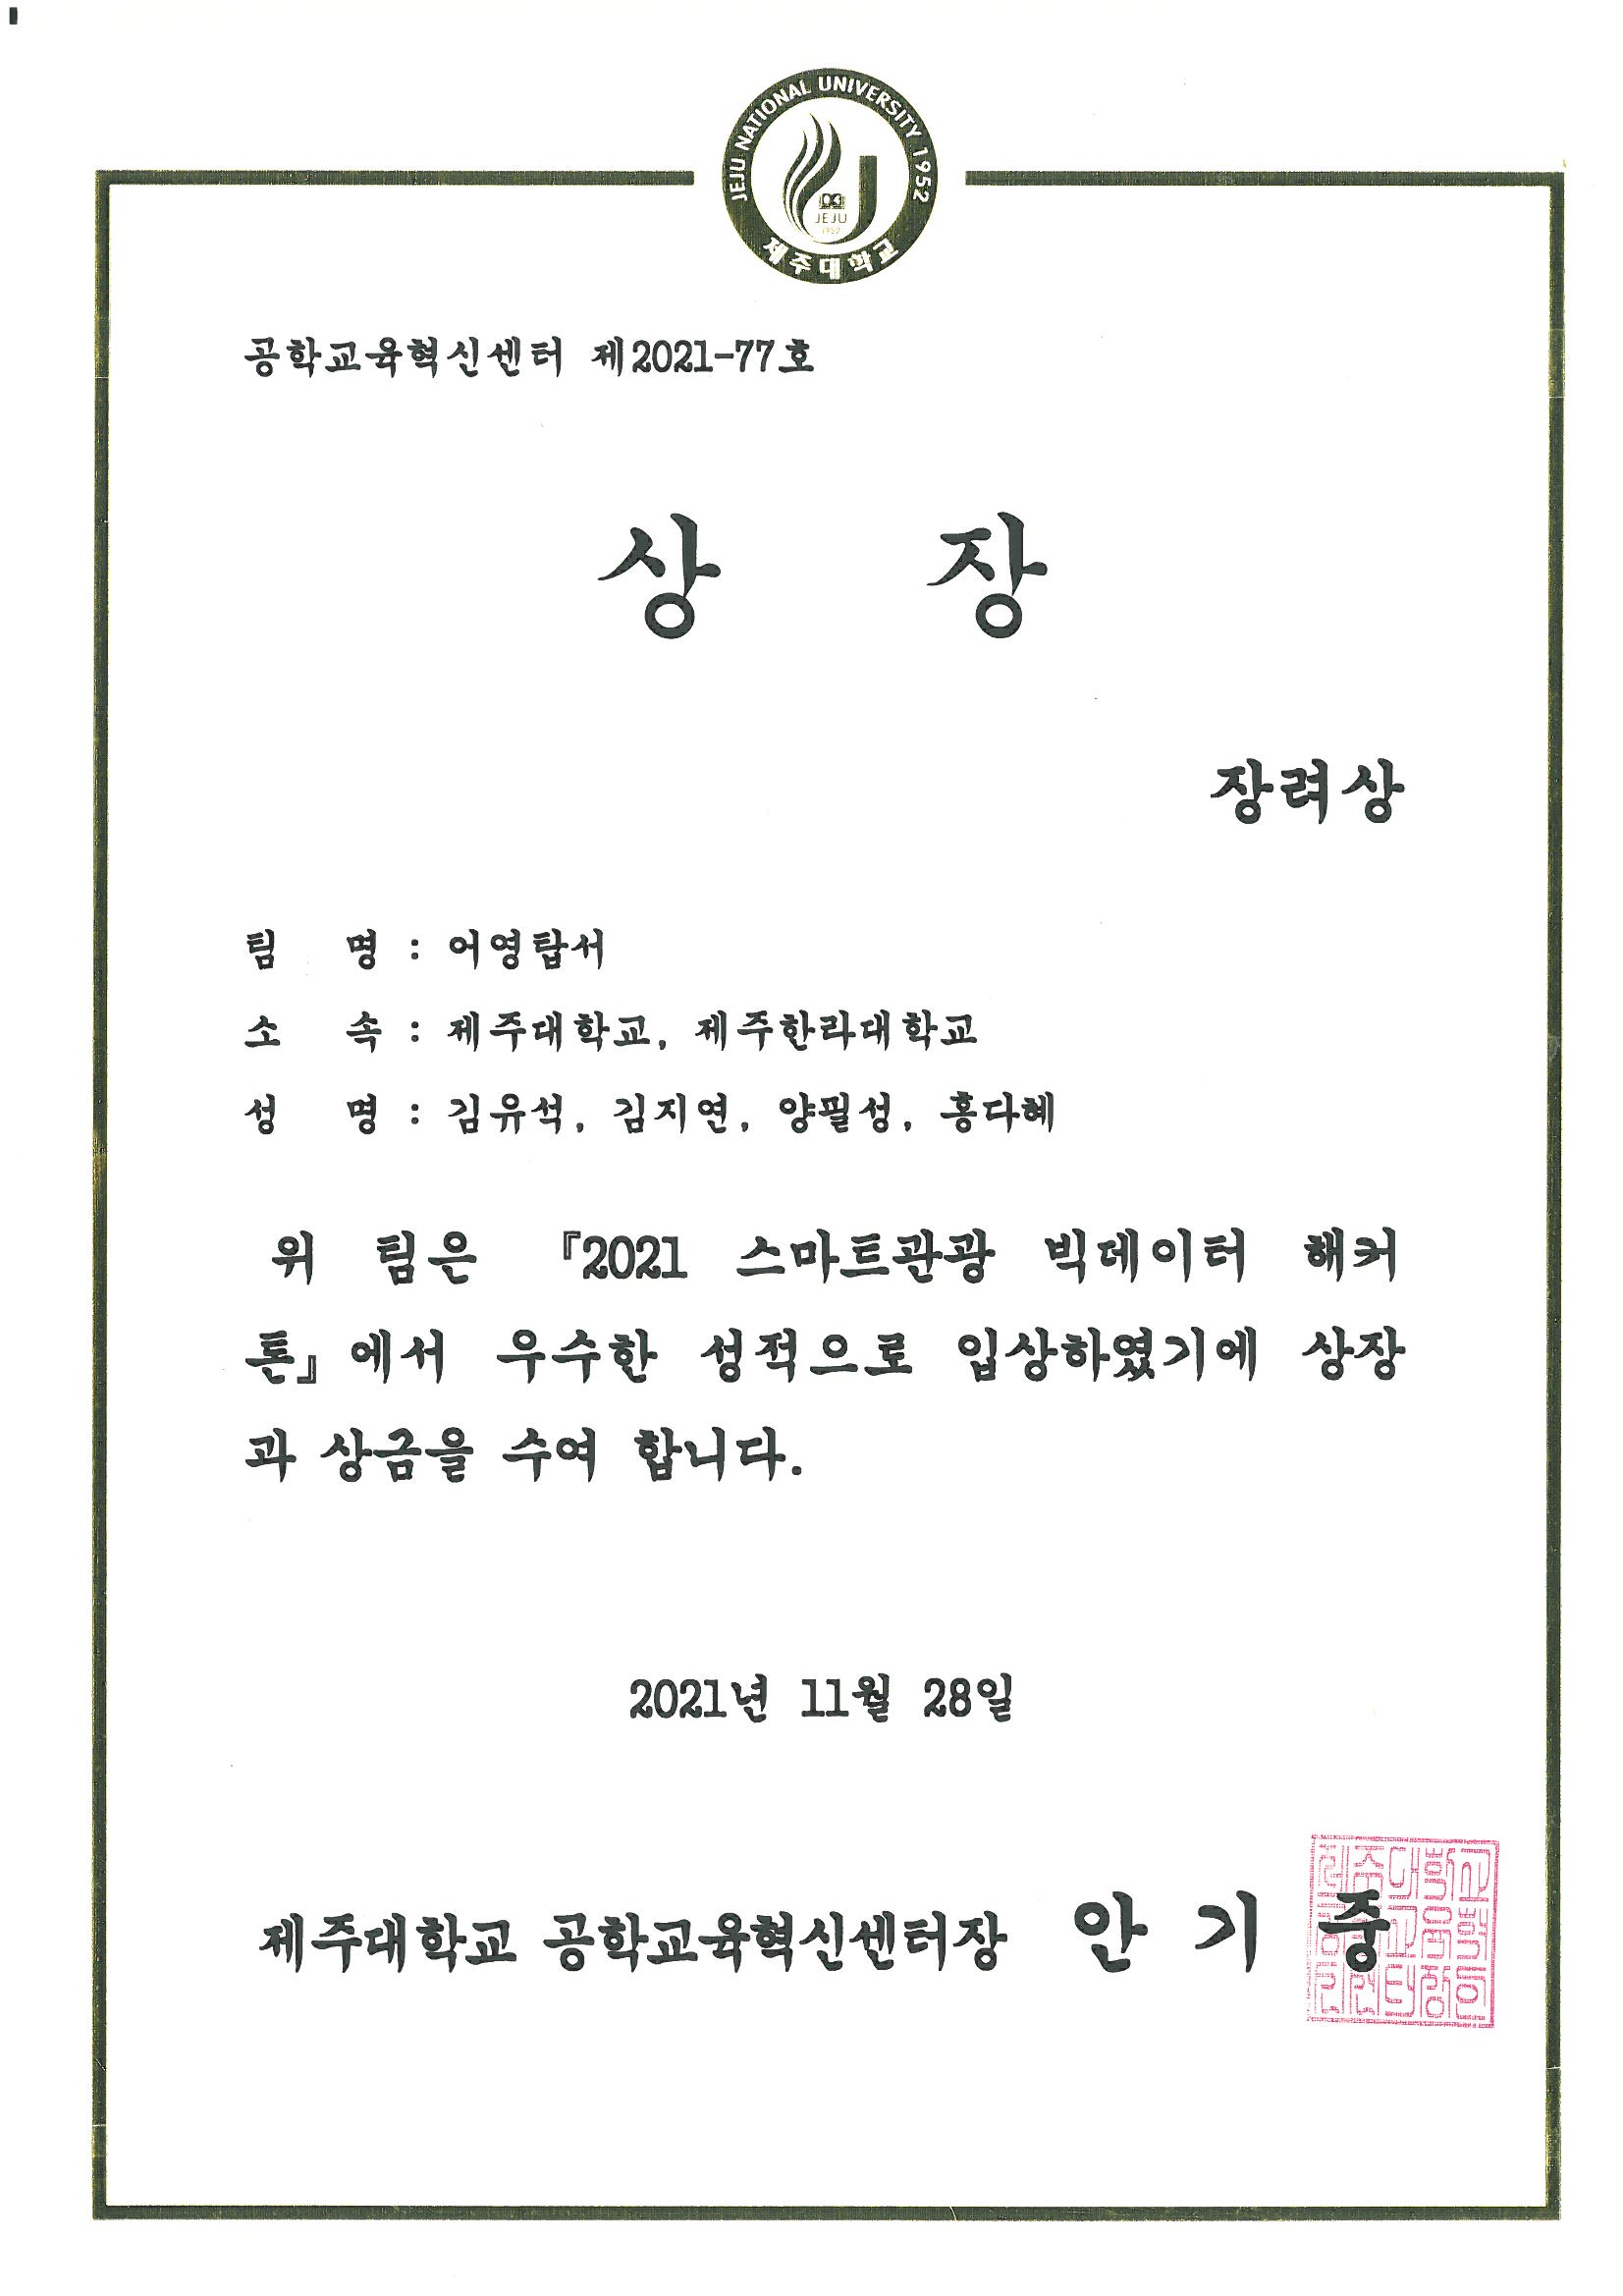 JEJU NATIONAL UNIVERSITY 1952
JEJU
1952
제주대학교
공학교육혁신센터 제2021-77호
상 장
장려상
팀 명 : 어영탑서
소 속 : 제주대학교, 제주한라대학교
성 명 : 김유석, 김지연, 양필성, 홍다혜
위 팀은 『2021 스마트관광 빅데이터 해커
톤』에서 우수한 성적으로 입상하였기에 상장
과 상금을 수여 합니다.
2021년 11월 28일
제주대학교 공학교육혁신센터장 안 기 중